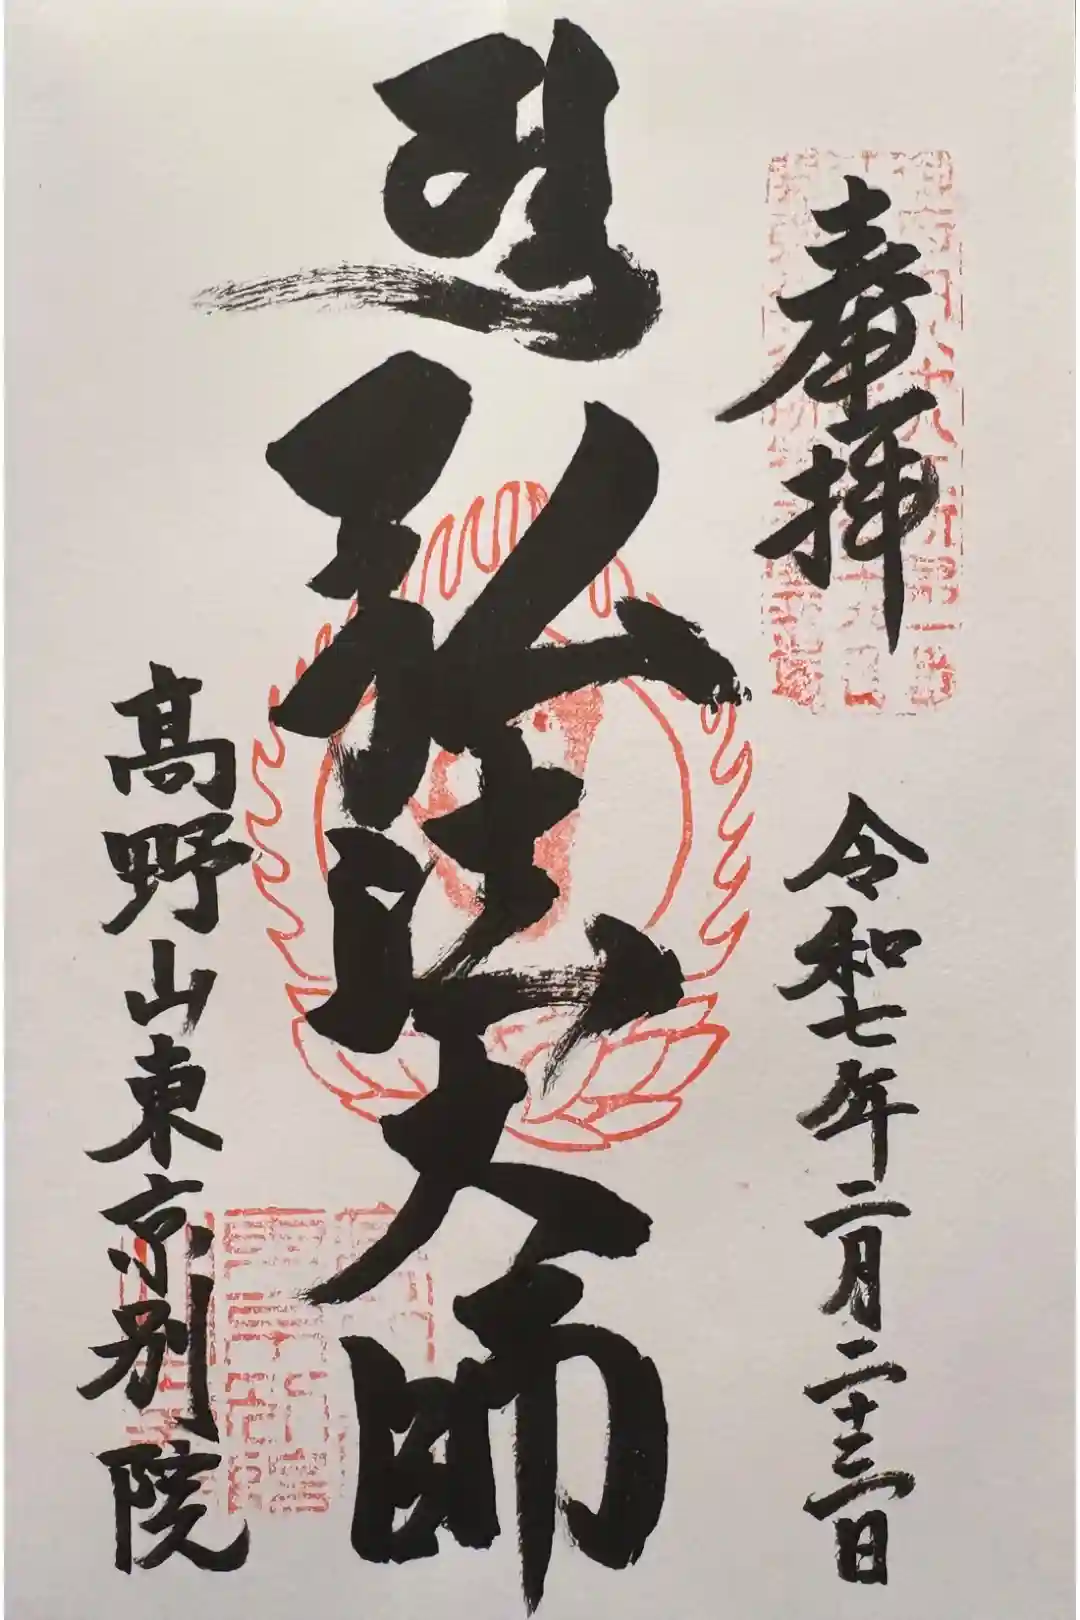 奉拝
令和七年二月二十三日
弘法大師
高野山東京別院